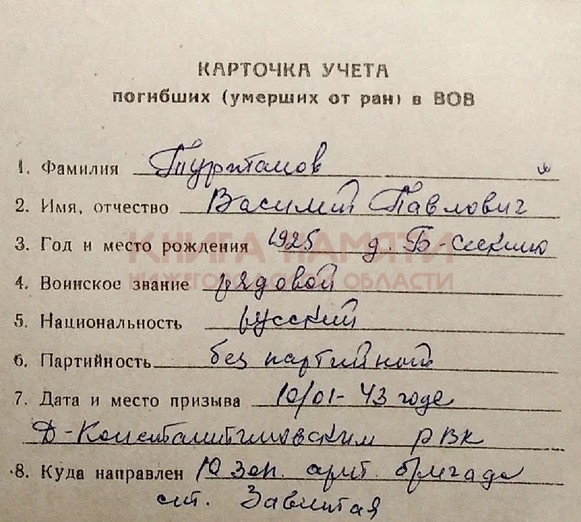 КАРТОЧКА УЧЕТА
погибших (умерших от ран) в ВОВ
1. Фамилия
2. Имя, отчество Василий Павлович
3. Год и место рождения 1925 д. Б-
КНИГА ПАМЯТИ
НИЖЕГОРОДСКОЙ ОБЛАСТИ
4. Воинское звание рядовой
5. Национальность русский
6. Партийность без партийный
7. Дата и место призыва 10/01-43 годе
Д-Константиновским РВК
8. Куда направлен 10 зап. арт. бригада
ст. Завитая